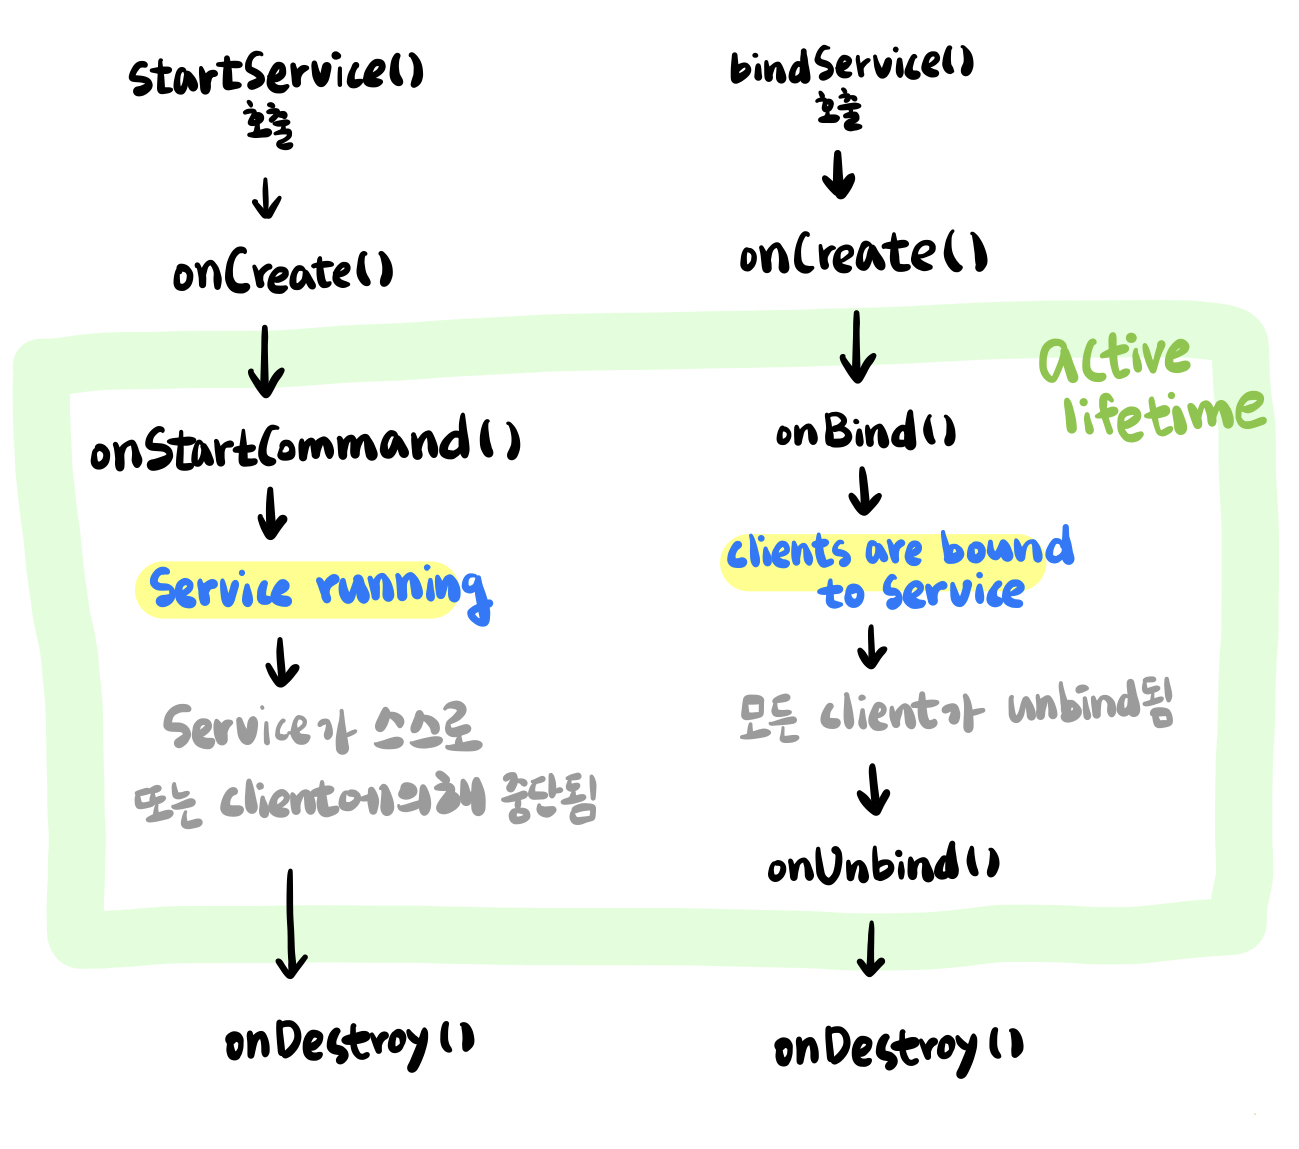 startService()
호출
onCreate()
onStartCommand()
Service running
Service가 스스로
또는 client에의해 중단됨
onDestroy()
bindService()
호출
onCreate()
active
lifetime
onBind()
clients are bound
to service
모든 client가 unbind됨
onUnbind()
onDestroy()